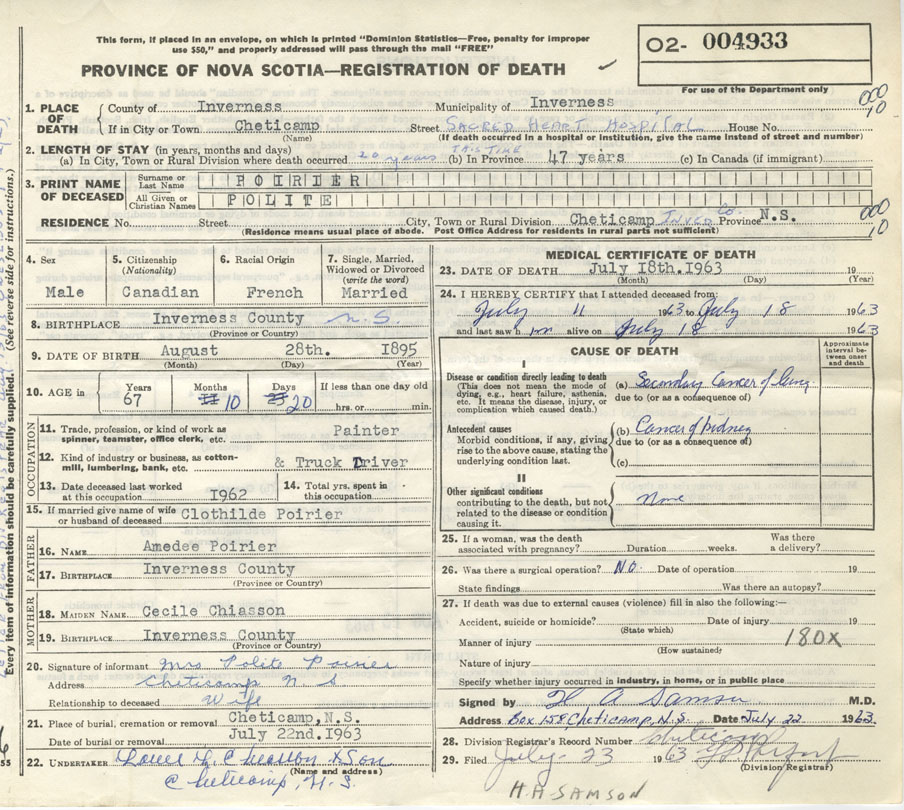 This form, if placed in an envelope, on which is printed "Dominion Statistics—Free, penalty for improper
use $50," and properly addressed will pass through the mail "FREE"
O2- 004933
PROVINCE OF NOVA SCOTIA—REGISTRATION OF DEATH
For use of the Department only
1. PLACE OF DEATH County of Inverness Municipality of Inverness
If in City or Town Cheticamp Street SACRED HEART HOSPITAL House No.
(Name) (If death occurred in a hospital or institution, give the name instead of street and number)
2. LENGTH OF STAY (in years, months and days)
(a) In City, Town or Rural Division where death occurred 20 years THIS TIME (b) In Province 47 years (c) In Canada (if immigrant)
3. PRINT NAME OF DECEASED Surname or Last Name POIRIER
All Given or Christian Names POLITE
RESIDENCE No. Street City, Town or Rural Division Cheticamp Inver Co. Province N.S.
(Residence means usual place of abode. Post Office Address for residents in rural parts not sufficient)
000
10
4. Sex Male
5. Citizenship (Nationality) Canadian
6. Racial Origin French
7. Single, Married, Widowed or Divorced (write the word) Married
8. BIRTHPLACE Inverness County N.S.
(Province or Country)
9. DATE OF BIRTH August 28th. 1895
(Month) (Day) (Year)
10. AGE in Years 67 Months 10 Days 20 If less than one day old hrs. or min.
OCCUPATION
11. Trade, profession, or kind of work as spinner, teamster, office clerk, etc. Painter
12. Kind of industry or business, as cotton-mill, lumbering, bank, etc. & Truck Driver
13. Date deceased last worked at this occupation I962
14. Total yrs. spent in this occupation
15. If married give name of wife or husband of deceased Clothilde Poirier
FATHER
16. NAME Amedee Poirier
17. BIRTHPLACE Inverness County
(Province or Country)
MOTHER
18. MAIDEN NAME Cecile Chiasson
19. BIRTHPLACE Inverness County
(Province or Country)
20. Signature of informant Mrs Polite Poirier
Address Cheticamp N S
Relationship to deceased Wife
21. Place of burial, cremation or removal Cheticamp,N.S.
Date of burial or removal July 22nd.I963
22. UNDERTAKER Chiasson & Son
(Name and address)
Cheticamp, N.S.
Every item of information should be carefully supplied. (See reverse side for instructions.)
MEDICAL CERTIFICATE OF DEATH
23. DATE OF DEATH July I8th.I963 19
(Month) (Day) (Year)
24. I HEREBY CERTIFY that I attended deceased from:
July 11 1963 to July 18 1963
and last saw him alive on July 18 1963
CAUSE OF DEATH
Approximate interval between onset and death
I
Disease or condition directly leading to death
(This does not mean the mode of dying, e.g., heart failure, asthenia, etc. It means the disease, injury, or complication which caused death.)
(a) Secondary Cancer of Lung
due to (or as a consequence of)
Antecedent causes
Morbid conditions, if any, giving rise to the above cause, stating the underlying condition last.
(b) Cancer of kidney
due to (or as a consequence of)
(c)
II
Other significant conditions contributing to the death, but not related to the disease or condition causing it.
None
25. If a woman, was the death associated with pregnancy? Duration weeks. Was there a delivery?
26. Was there a surgical operation? No. Date of operation 19
State findings Was there an autopsy?
27. If death was due to external causes (violence) fill in also the following:—
Accident, suicide or homicide? Date of injury 19
(State which)
Manner of injury 180X
(How sustained)
Nature of injury
Specify whether injury occurred in industry, in home, or in public place
Signed by H A Samson M.D.
Address Box 158, Cheticamp, N.S. Date July 22 1963
28. Division Registrar's Record Number
29. Filed July - 23 1963
(Division Registrar)
H.A SAMSON